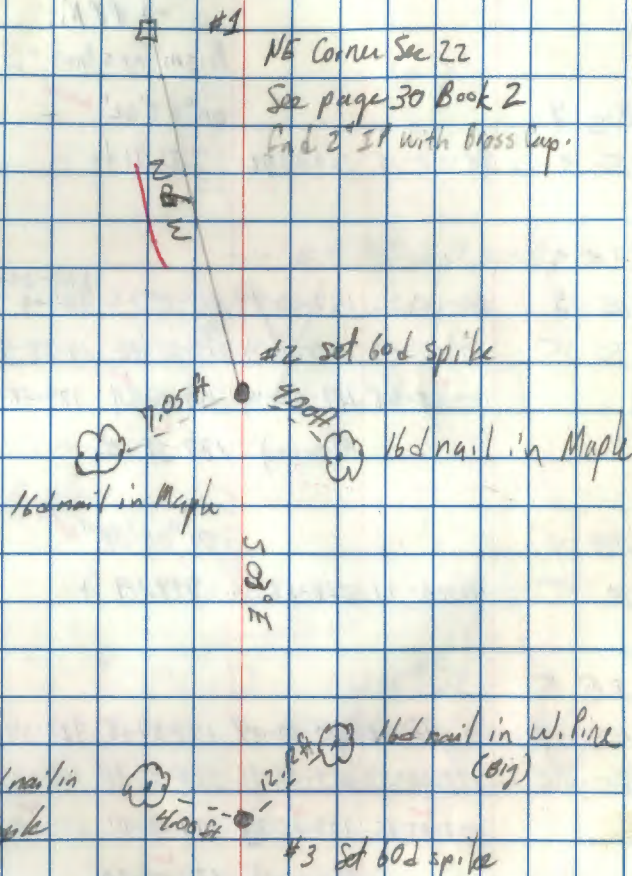 #1
NE Corner Sec 22
See page 30 Book 2
fnd 2" IP with Brass Cap.
#2 set 60d spike
7.05 ft
4.00 ft
16d nail in Maple
16d nail in Maple
16d nail in W. Pine
(Big)
nail in
4.00 ft
#3 set 60d spike